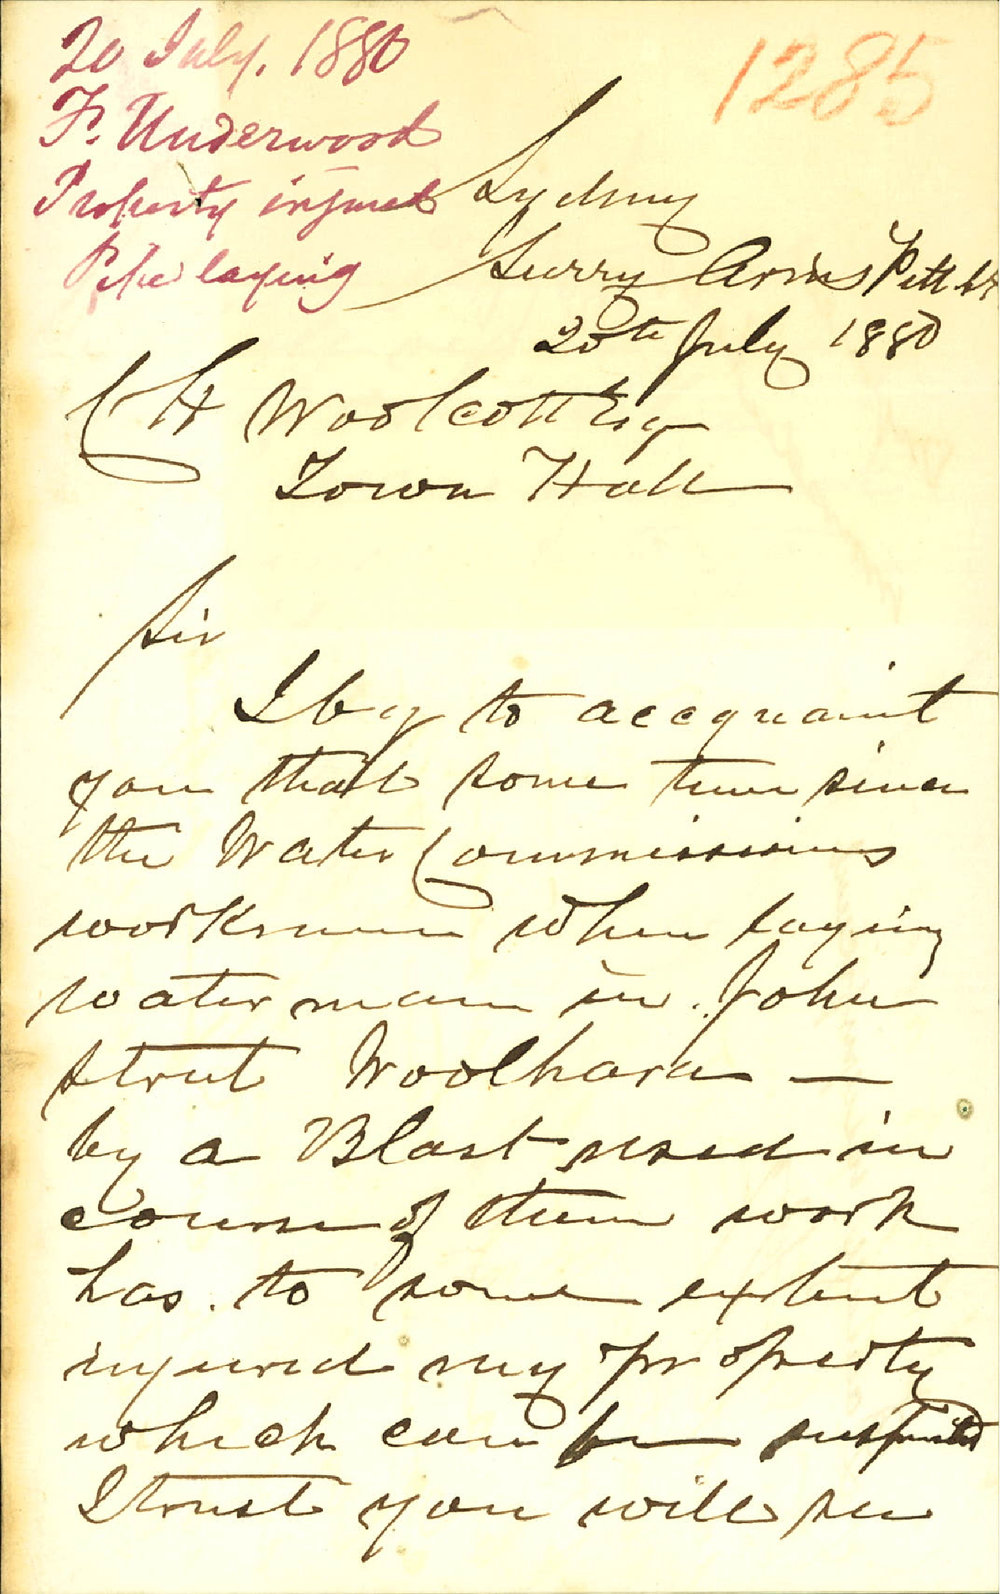 20 July, 1880
F. Underwood
Property injured
Pipe laying
1285
Sydney
Surry Arms Pitt St
20th July 1880
C H Woolcott Esq
Town Hall
Sir
I beg to accquaint
you that some time since
the Water Commissions
workmen when laying
water main in John
street Woolhara —
by a Blast used in
course of their work
has to some extent
injured my property
which can be
I trust you will see